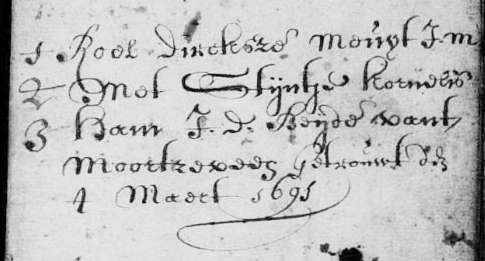 1 Roel Dircksze Mouyt J.m
2 Met Stijntje Kornelis
3 Ham J. d. Beyde vant
Moortzeveen getrouwt den
4 Maert 1691